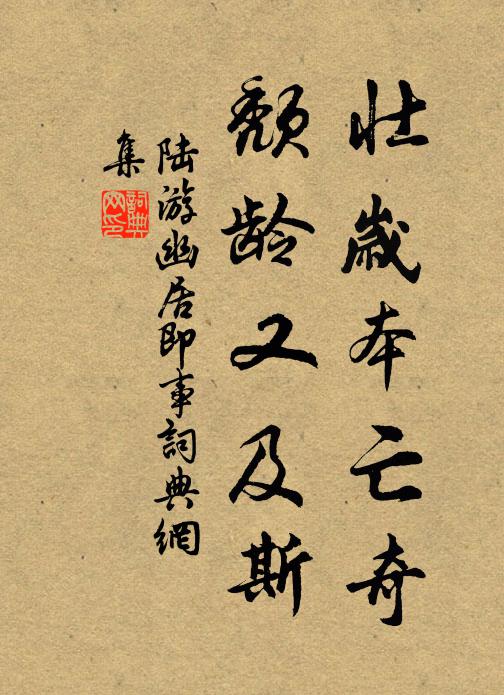 壮歳本亡奇
頹齡又及斯
陆游幽居即事詞典網
集
詞典
网印